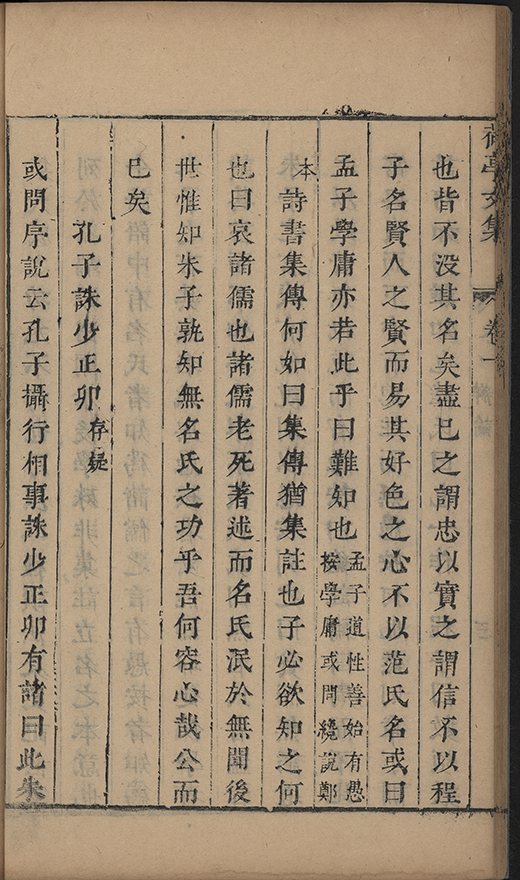 荷亭文集 卷一
也皆不没其名矣盡已之謂忠以實之謂信不以程
子名賢人之賢而易其好色之心不以范氏名或曰
孟子學庸亦若此乎曰難知也孟子道性善始有愚
按學庸或問纔說鄭
本詩書集傳何如曰集傳猶集註也子必欲知之何
也曰哀諸儒也諸儒老死著述而名氏泯於無聞後
世惟知朱子孰知無名氏之功乎吾何容心哉公而
已矣
孔子誅少正卯存疑
或問序說云孔子攝行相事誅少正卯有諸曰此朱